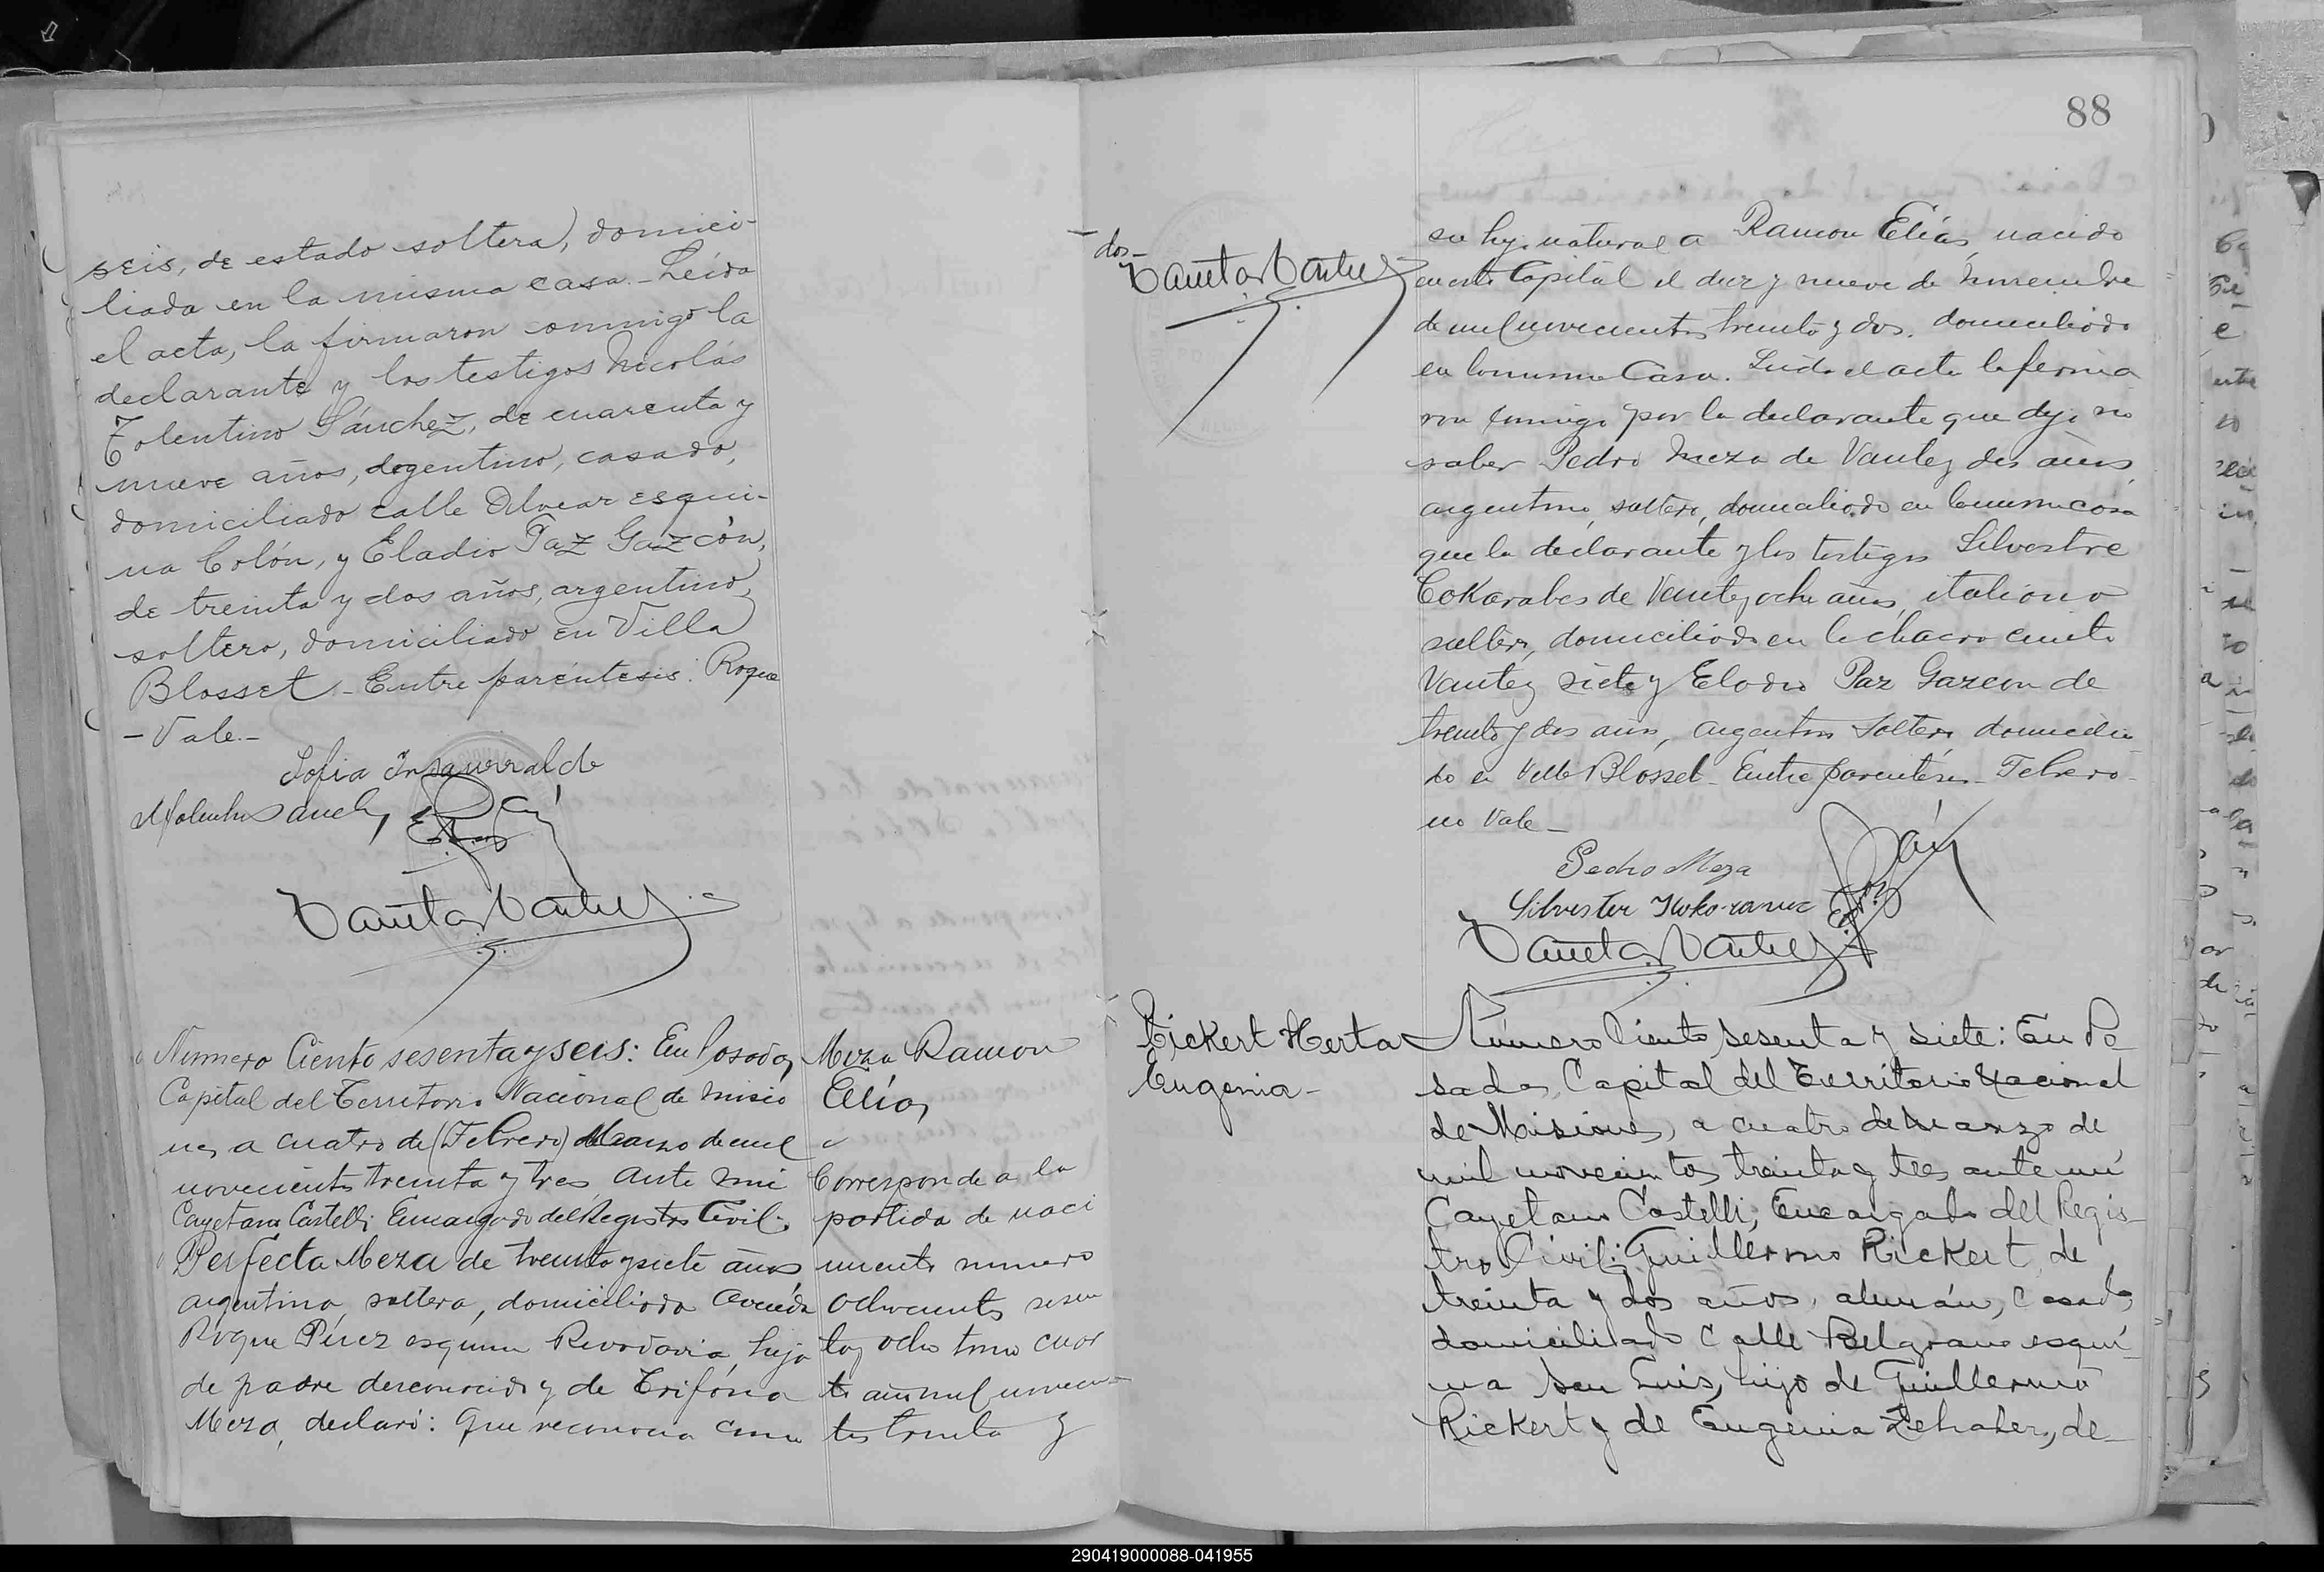 seis, de estado soltera, domici-
liada en la misma casa.- Leída
el acta, la firmaron conmigo la
declarante y los testigos Nicolás
Tolentino Sánchez, de cuarenta y
nueve años, argentino, casado,
domiciliado calle Alvear esqui-
na Colón, y Eladio Paz Gazcón,
de treinta y dos años, argentino,
soltero, domiciliado en Villa
Blosset.- Entre paréntesis: Roque
- Vale.-
Sofia Insaurralde
Numero Ciento sesenta y seis: En Posadas
Capital del Territorio Nacional de Misio
nes a cuatro de (Febrero) Marzo de mil
novecientos treinta y tres ante mi
Cayetano Castelli Encargado del Registro Civil:
Perfecta Meza de treinta y siete años
argentina, soltera, domiciliada Avenida
Roque Pérez esquina Rivadavia, hija
de padre desconocido y de Trifona
Meza, declaró: Que reconocía como
Meza Ramon
Elías
Corresponde a la
partida de naci
miento numero
ochocientos sesen
ta y ocho tomo cuar
to año mil novecien-
tos treinta y
88
- dos -
su hijo natural a Ramon Elías, nacido
en esta Capital el diez y nueve de Noviembre
de mil novecientos treinta y dos, domiciliado
en la misma Casa. Leida el acta la firma
ron conmigo por la declarante que dijo no
saber Pedro Meza de Veinte y dos años
argentino, soltero, domiciliado en la misma casa
que la declarante y los testigos Silvestre
Cokarabes de Veinte y ocho años, italiano
soltero, domiciliado en la chacra ciento
Veinte y siete y Eladio Paz Gazcon de
treinta y dos años, argentino soltero domicilia
do en Villa Blosset - Entre parentesis - Febrero -
no Vale -
Pedro Meza
Rickert Herta
Eugenia -
Número Ciento sesenta y siete: En Po
sadas, Capital del Territorio Nacional
de Misiones, a cuatro de Marzo de
mil novecientos treinta y tres ante mí
Cayetano Castelli, Encargado del Regis-
tro Civil: Guillermo Rickert, de
treinta y dos años, alemán, casado,
domiciliado calle Belgrano esqui-
na San Luis, hijo de Guillermo
Rickert y de Eugenia de-
290419000088-041955